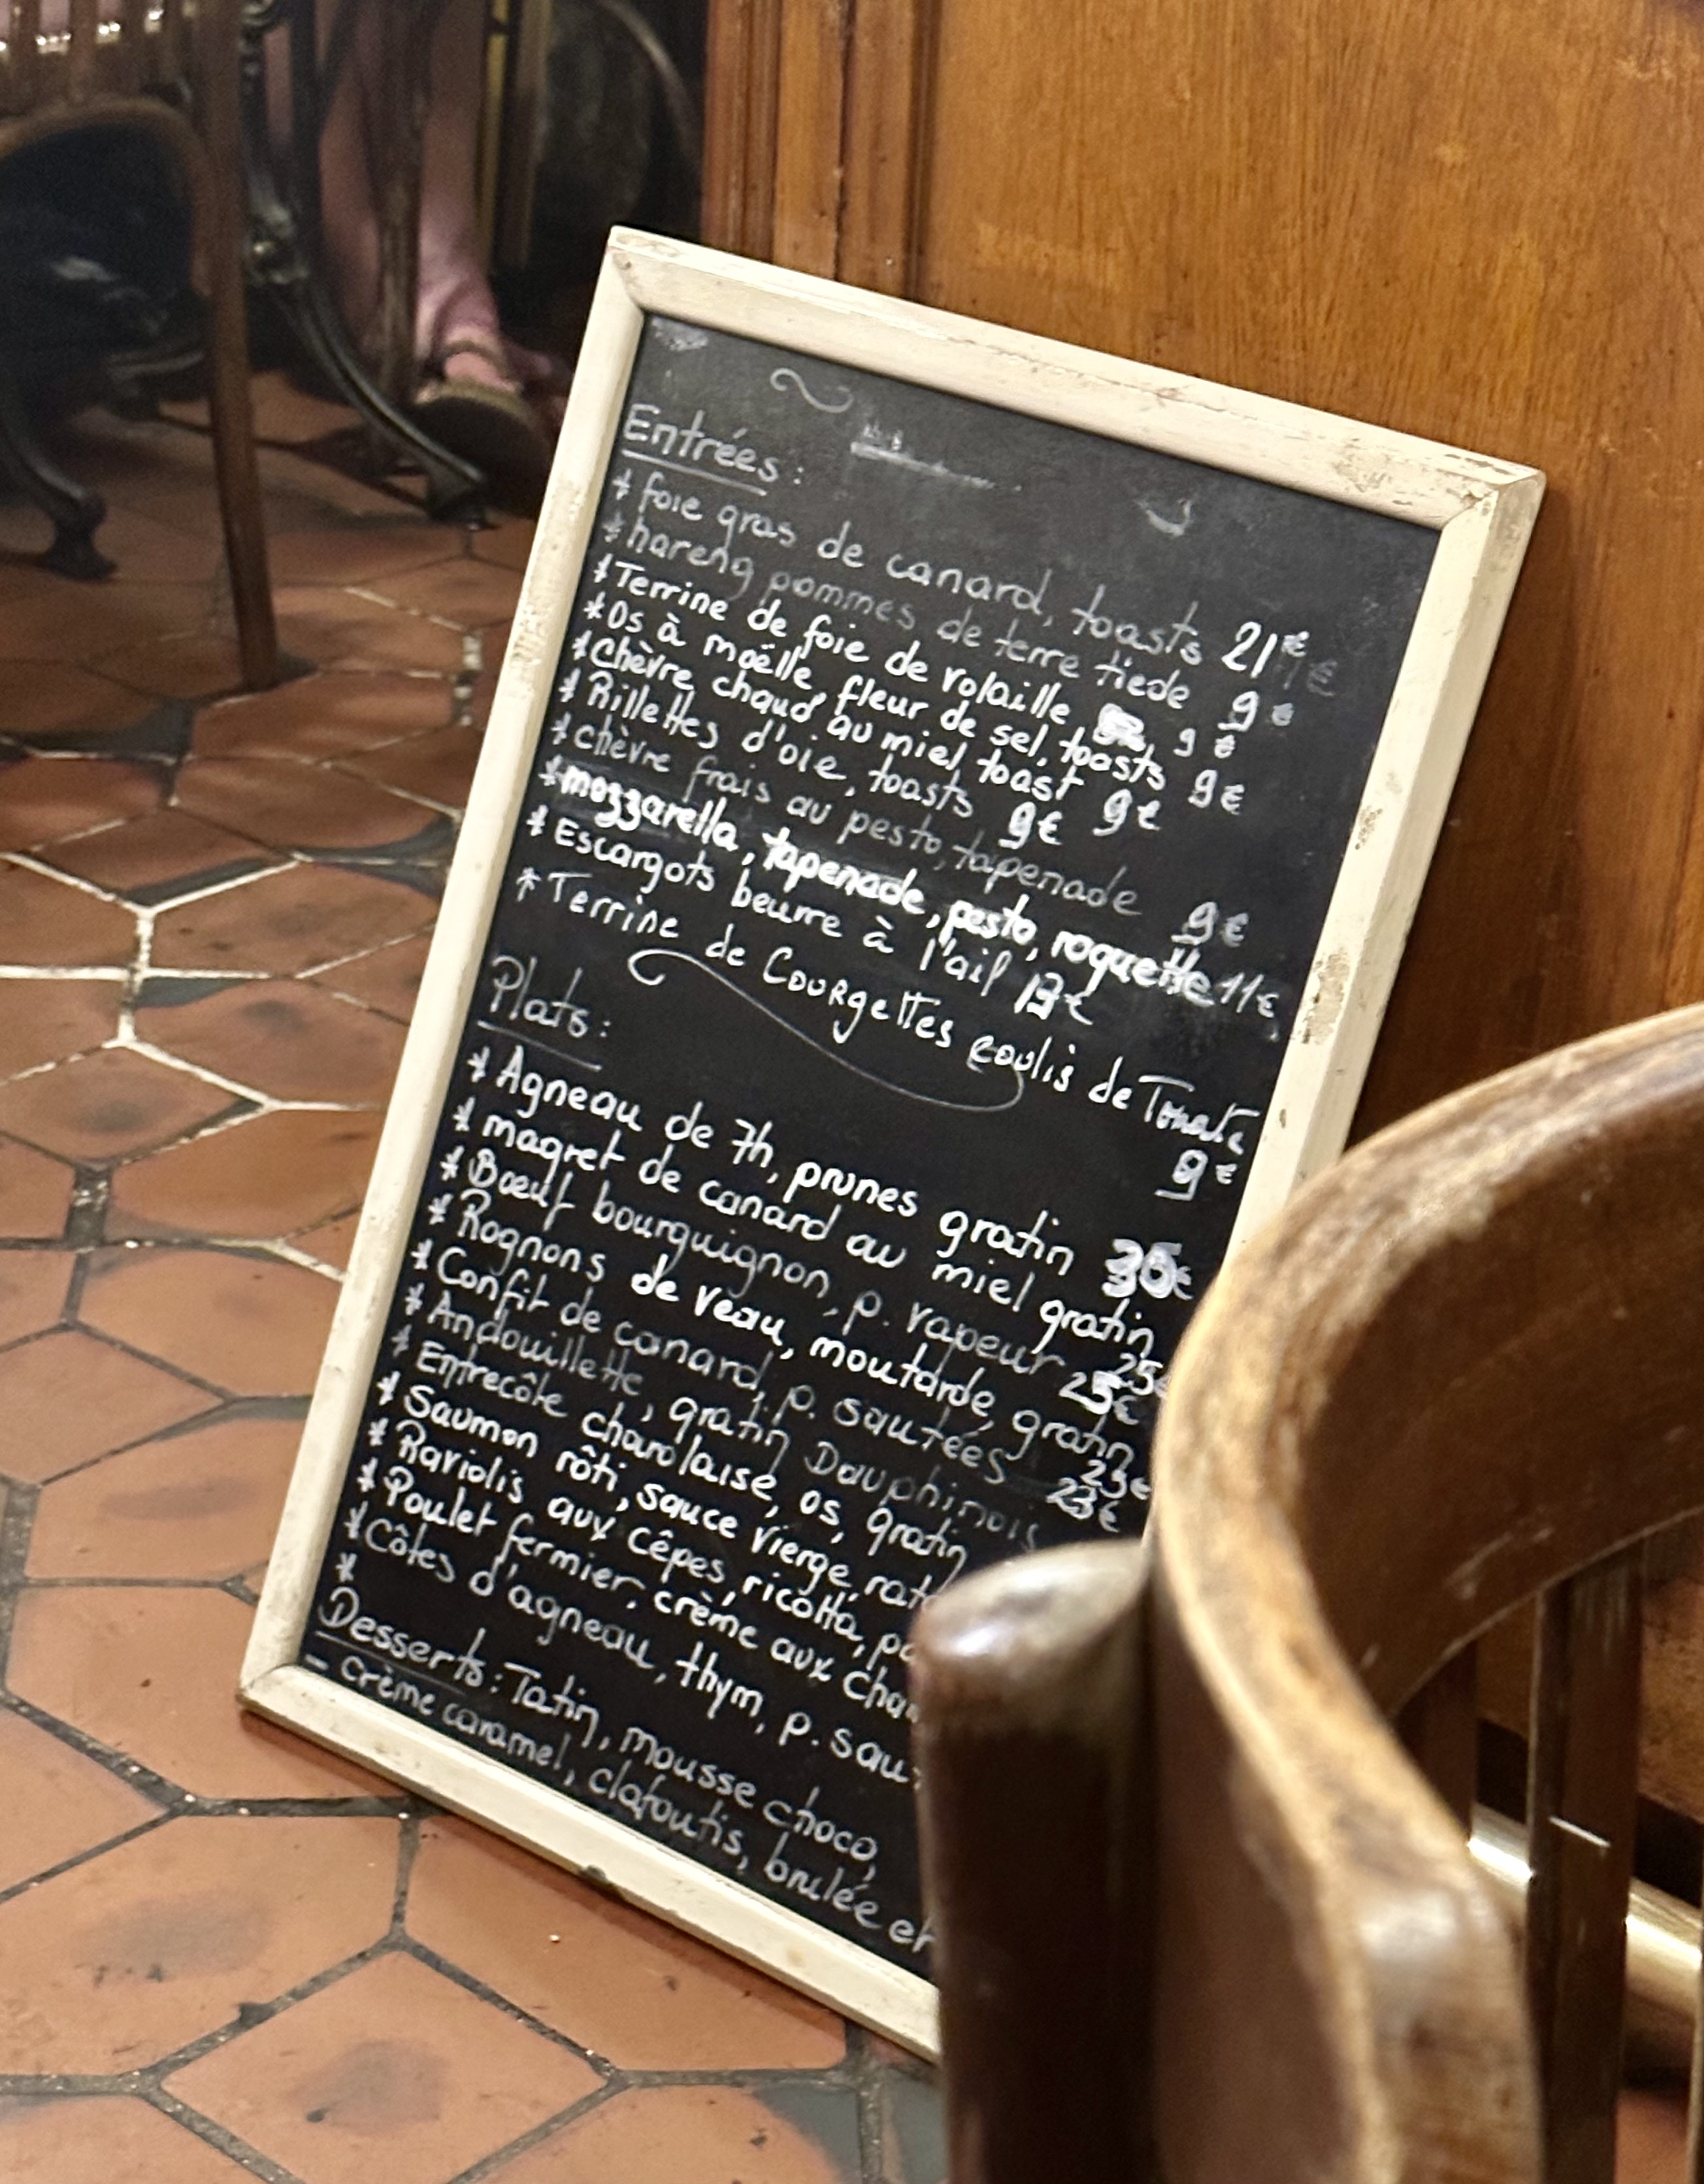 Entrées :
* foie gras de canard, toasts 21€
* hareng pommes de terre tiede 9€
* Terrine de foie de volaille, 9€
* Os à moëlle, fleur de sel, toasts 9€
* chèvre chaud au miel toast 9€
* Rillettes d'oie, toasts 9€
* chèvre frais au pesto, tapenade 9€
* mozzarella, tapenade, pesto, roquette 11€
* Escargots beurre à l'ail 13€
* Terrine de Courgettes coulis de Tomate
9€
Plats :
* Agneau de 7h, prunes gratin
* magret de canard au miel gratin 25€
* Bœuf bourguignon, p. vapeur 25€
* Rognons de veau, moutarde, gratin 23€
* Confit de canard, p. sautées 23€
* Andouillette, gratin Dauphinois
* Entrecôte charolaise, os, gratin
* Saumon rôti, sauce vierge,
* Raviolis aux cêpes, ricotta,
* Poulet fermier, crème aux
* Côtes d'agneau, thym, p.
*
Desserts : Tatin, mousse choco,
- crème caramel, clafoutis, brulée et